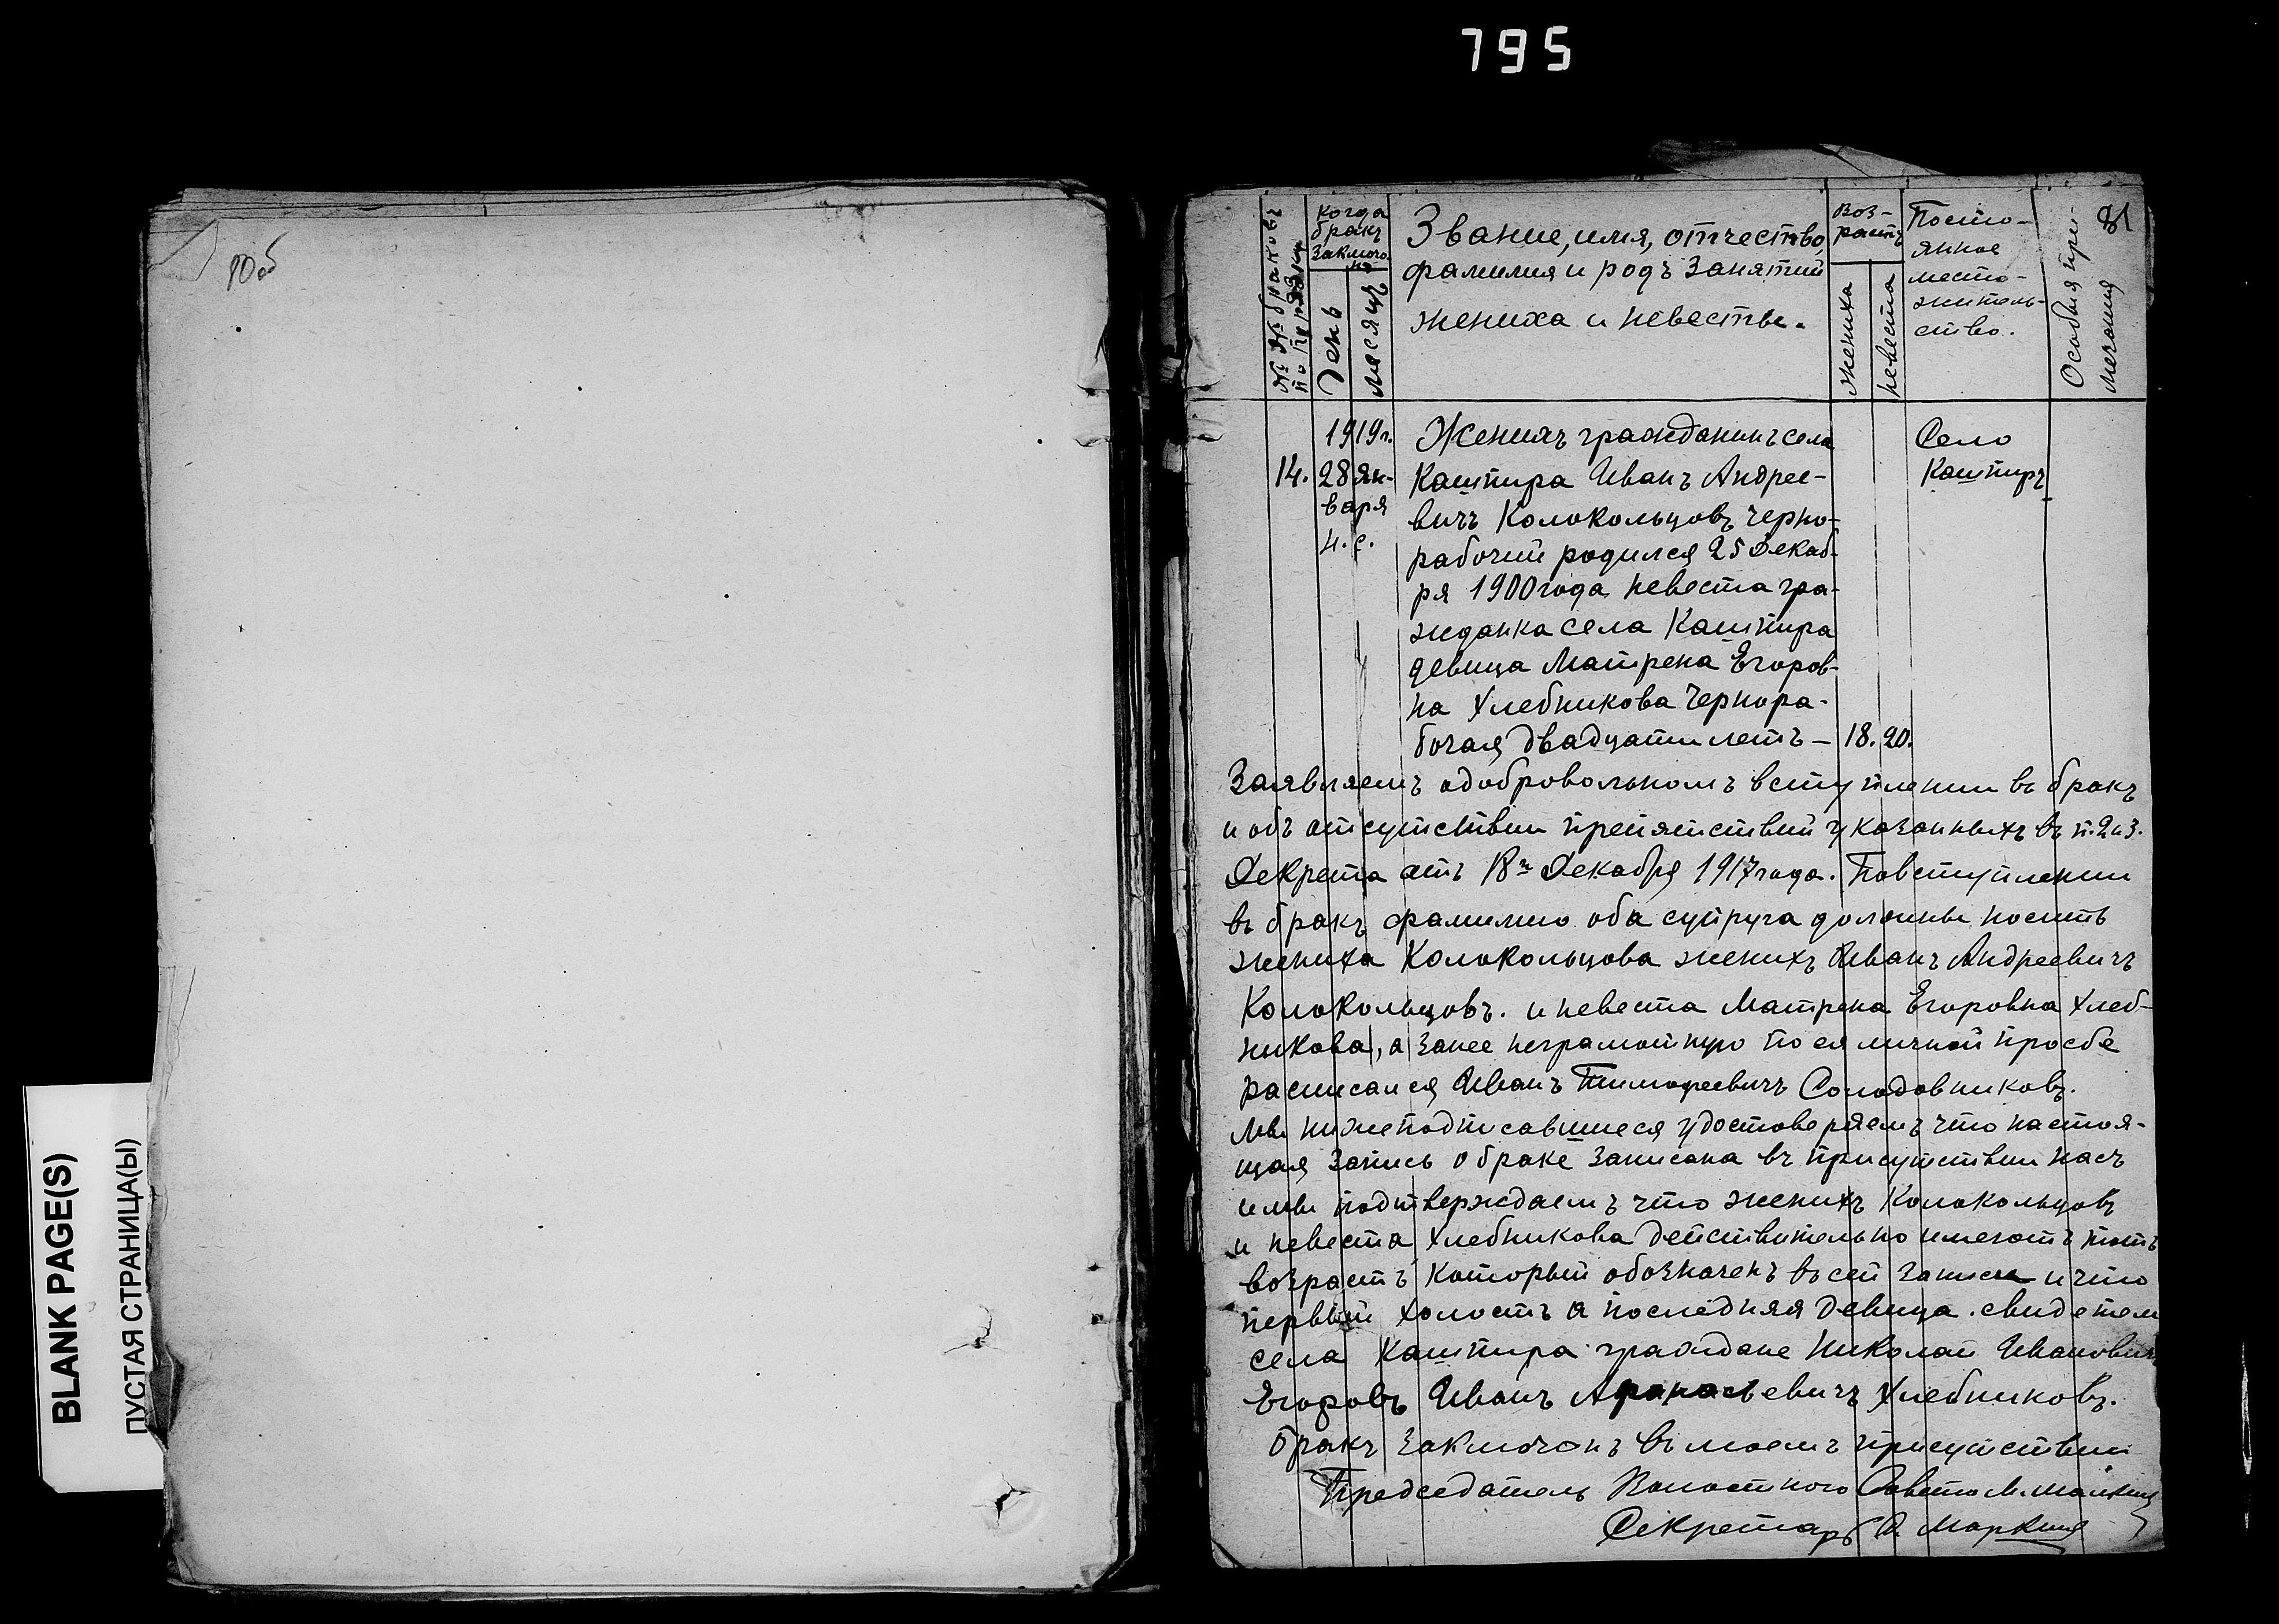 795
10об
BLANK PAGE(S)
ПУСТАЯ СТРАНИЦА(Ы)
№ № браковъ
по порядку
Когда
бракъ
Заключо
нъ
День
месяцъ
Звание, имя, отчество,
фамилия и родъ Занятий
жениха и невесты.
Воз-
растъ
жениха
невеста
Посто-
янное
место-
житель-
ство.
Особыя при-
мечания
1919 г.
14. 28 Ян-
варя
н. с.
Женихъ гражданинъ села
Каштира Иванъ Андрее-
вичъ Колокольцовъ черно-
рабочий родился 25 Декаб-
ря 1900 года невеста гра-
жданка села Каштира
девица Матрена Егоров-
на Хлебникова Чернора-
бочая двадцати летъ – 18. 20.
Село
Каштиръ
Заявляемъ одобровольномъ вступлении въ бракъ
и объ отсутствии препятствий указанныхъ въ п. 2 и 3.
Декрета отъ 18го Декабря 1917 года. Повступлении
въ бракъ фамилию оба супруга должны носить
жениха Колокольцова женихъ Иванъ Андреевичъ
Колокольцовъ. и невеста Матрена Егоровна Хлеб-
никова, а Занее неграмотную по ея личной просбе
расписался Иванъ Тимофеевичъ Солодовниковъ.
Мы нижеподписавшиеся удостоверяемъ что настоя-
щая Запись о браке Записана въ присутствии насъ
и мы подтверждаемъ что женихъ Колокольцовъ
и невеста Хлебникова действительно имеютъ тотъ
возрастъ который обозначенъ въ сей записи и что
первый холостъ а последняя Девица. свидетели
села Каштира граждане Николай Ивановичъ
Егоровъ Иванъ Афанасьевичъ Хлебниковъ.
бракъ Заключонъ въ моемъ присутствии
Председатель Волостного Совета М.
Секретарь Маркин